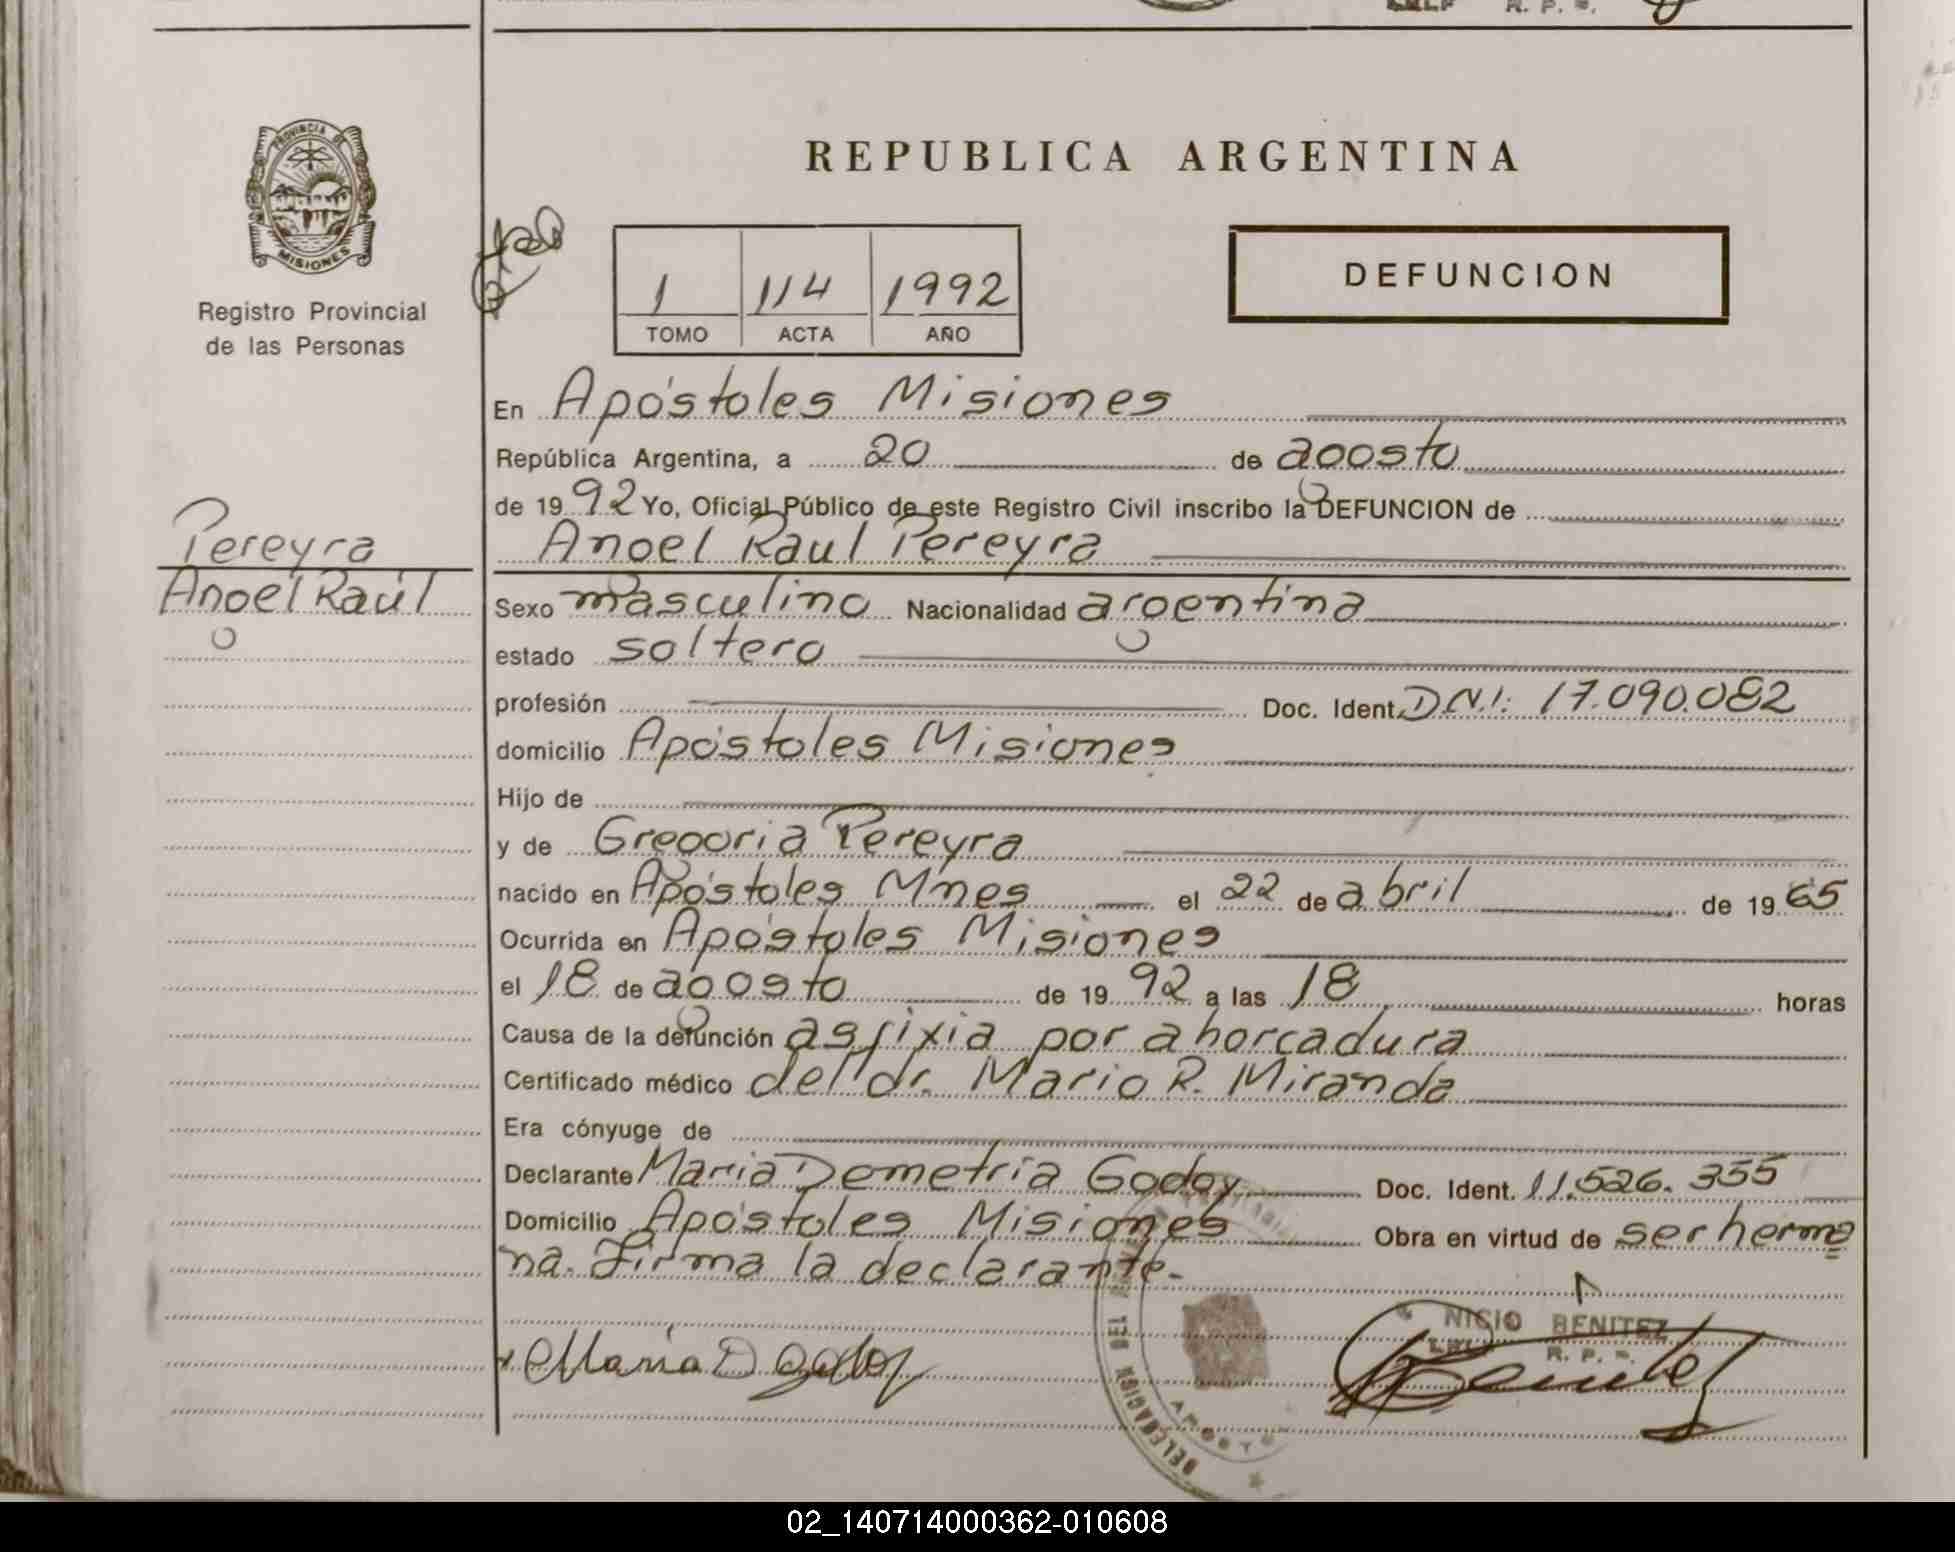 PROVINCIA DE
MISIONES
Registro Provincial
de las Personas
REPUBLICA ARGENTINA
1 114 1992
TOMO ACTA AÑO
DEFUNCION
En Apóstoles Misiones
República Argentina, a 20 de agosto
de 1992 Yo, Oficial Público de este Registro Civil inscribo la DEFUNCION de
Angel Raul Pereyra
Pereyra
Angel Raúl
Sexo masculino Nacionalidad argentina
estado soltero
profesión Doc. Ident. D.N.I: 17.090.082
domicilio Apóstoles Misiones
Hijo de
y de Gregoria Pereyra
nacido en Apóstoles Mnes el 22 de abril de 1965
Ocurrida en Apóstoles Misiones
el 18 de agosto de 1992 a las 18 horas
Causa de la defunción asfixia por ahorcadura
Certificado médico del dr. Mario R. Miranda
Era cónyuge de
Declarante Maria Demetria Godoy Doc. Ident. 11.526.355
Domicilio Apóstoles Misiones Obra en virtud de ser herma
na. Firma la declarante.-
Maria D Godoy
NICIO BENITEZ
R. P. P.
DELEGACION DEL
APOSTO
02_140714000362-010608